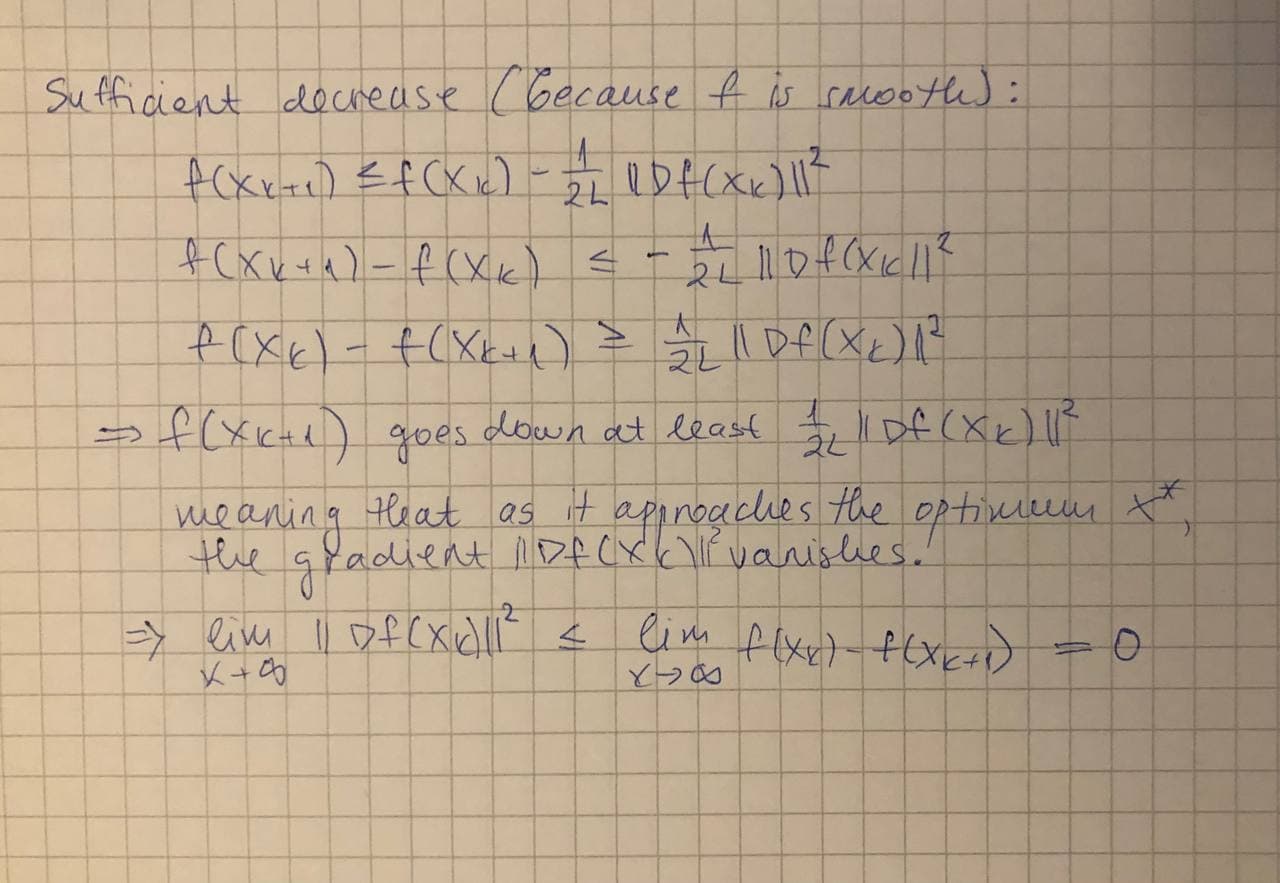 Sufficient decrease (because f is smooth):
f(x_{k+1}) ≤ f(x_k) - 1/2L ||∇f(x_k)||²
f(x_{k+1}) - f(x_k) ≤ - 1/2L ||∇f(x_k||²
f(x_k) - f(x_{k+1}) ≥ 1/2L ||∇f(x_k)||²
⇒ f(x_{k+1}) goes down at least 1/2L ||∇f(x_k)||²
meaning that as it approaches the optimum x*,
the gradient ||∇f(x_k)||² vanishes.
⇒ lim_{k→∞} ||∇f(x_k)||² ≤ lim_{k→∞} f(x_k) - f(x_{k+1}) = 0